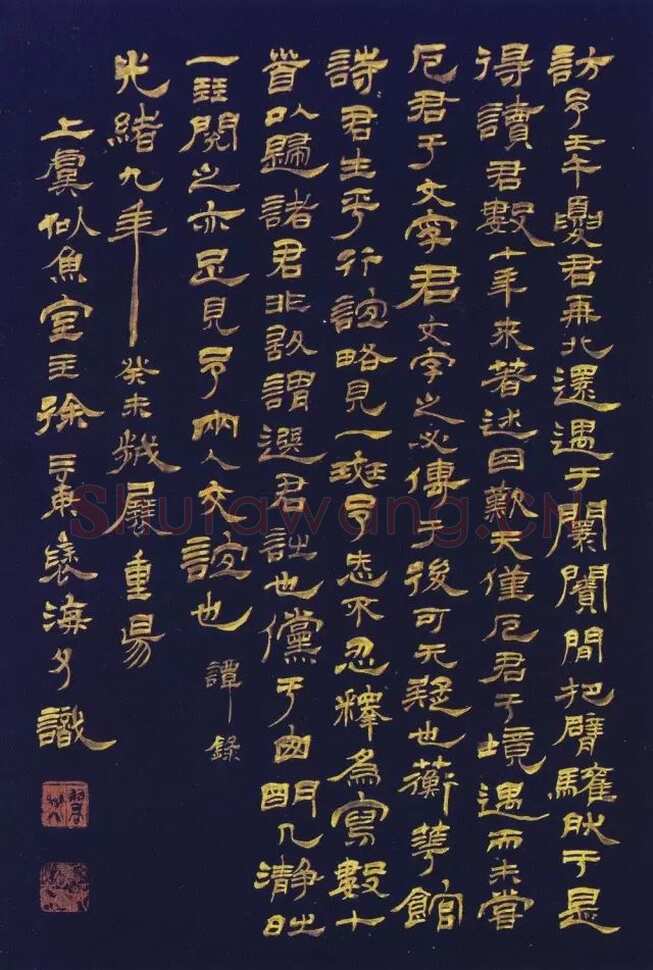 訪予壬午夏君再北還遇于闤闠間把臂驩肰于是
得讀君數十年來著述因歎天僅厄君于境遇而未嘗
厄君于文字君文字之必傳于後可无疑也蘅華館
詩君生平行誼略見一斑予不忍釋為寫數十
首以歸諸君非敢謂選君詩也儻于囱明几瀞時
一閱之亦足見予兩人交誼也 譚錄
光緒九年癸未秋展重昜
上虞似魚室主徐三庚褎海父識
Shufawang.CN